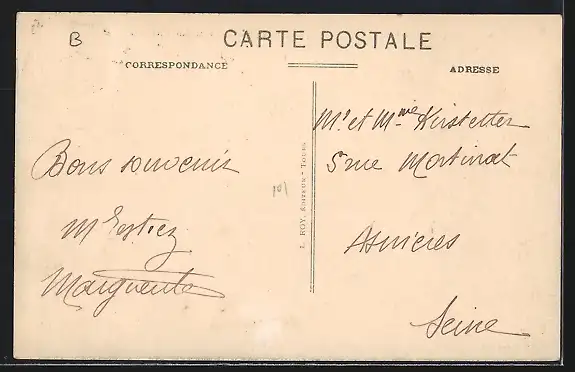 B
CARTE POSTALE
CORRESPONDANCE
ADRESSE
Bons souvenir
Marguerite
L. ROY, ÉDITEUR - TOURS
Mr et Mme Kirstetter
5 rue Mortinat
Asnieres
Seine